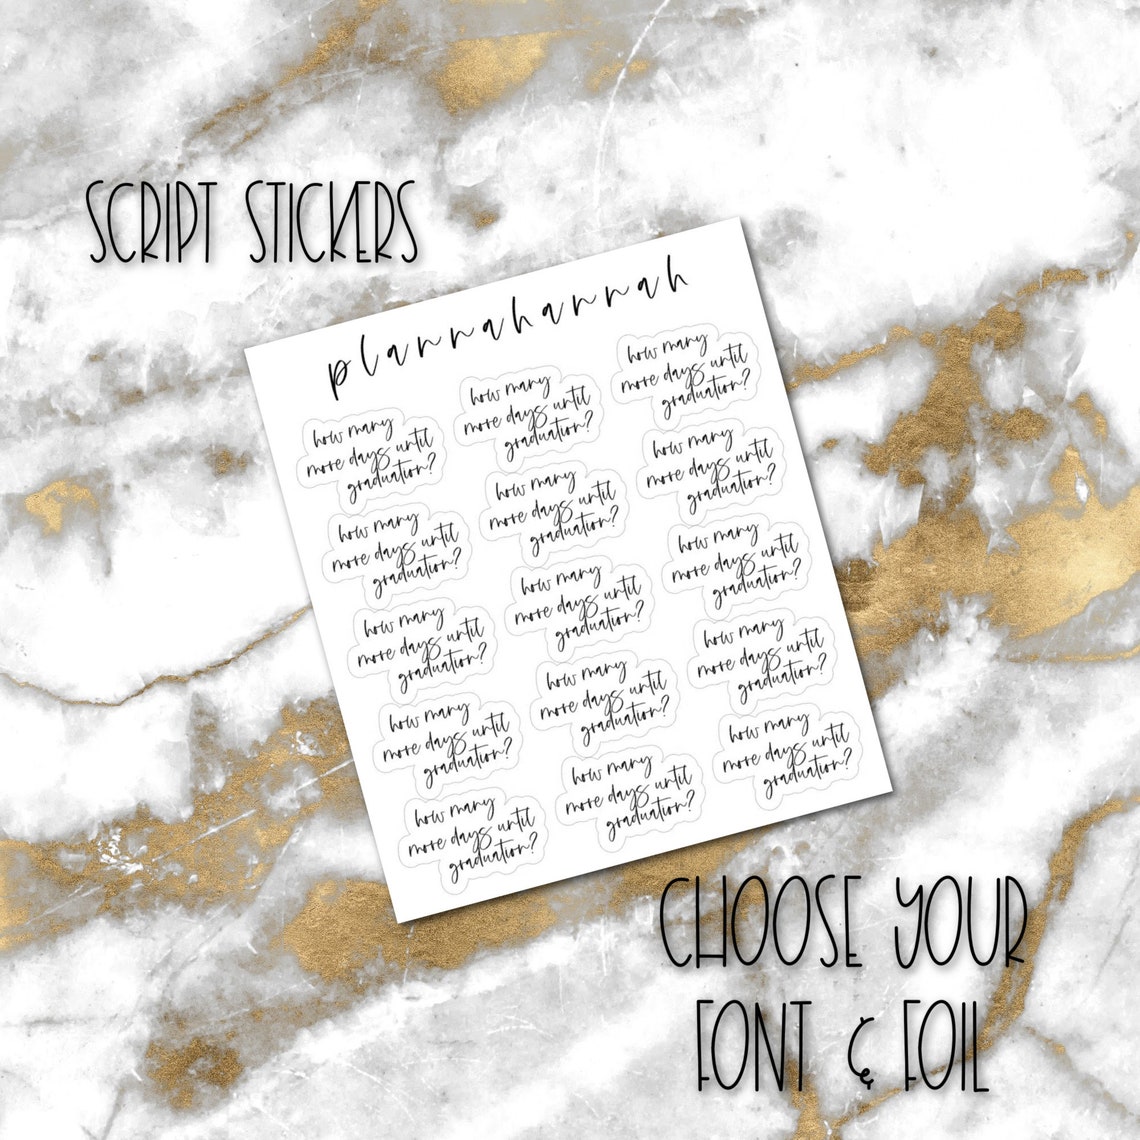 SCRIPT STICKERS
plannahannah
how many
more days until
graduation?
how many
more days until
graduation?
how many
more days until
graduation?
how many
more days until
graduation?
how many
more days until
graduation?
how many
more days until
graduation?
how many
more days until
graduation?
how many
more days until
graduation?
how many
more days until
graduation?
how many
more days until
graduation?
how many
more days until
graduation?
how many
more days until
graduation?
how many
more days until
graduation?
how many
more days until
graduation?
how many
more days until
graduation?
CHOOSE YOUR
FONT & FOIL